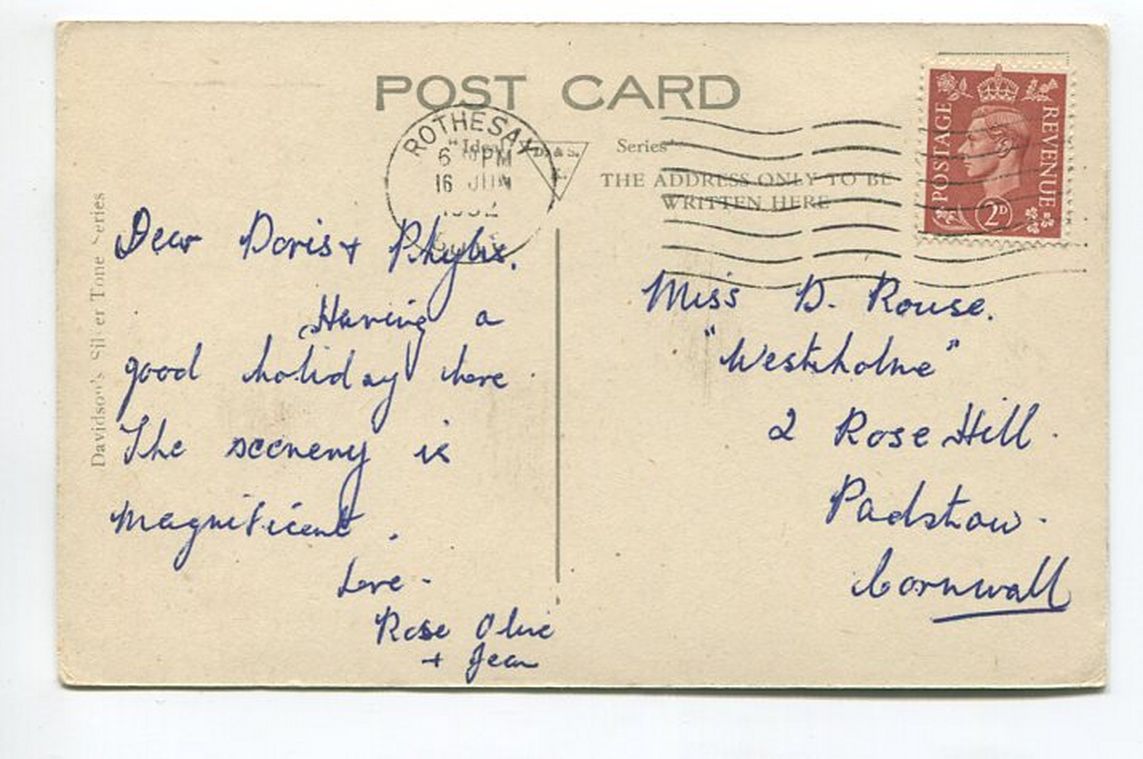 POST CARD
"Ideal" D. & S. Series"
THE ADDRESS ONLY TO BE
WRITTEN HERE
ROTHESAY
6 PM
16 JUN
1952
POSTAGE
REVENUE
2D
Davidson's Silver Tone Series
Dear Doris + Phyllis.
Having a
good holiday here
The scenery is
magnificent.
Love -
Rose Olive
+ Jean
Miss D. Rouse.
"Westholme"
2 Rose Hill.
Padstow.
Cornwall